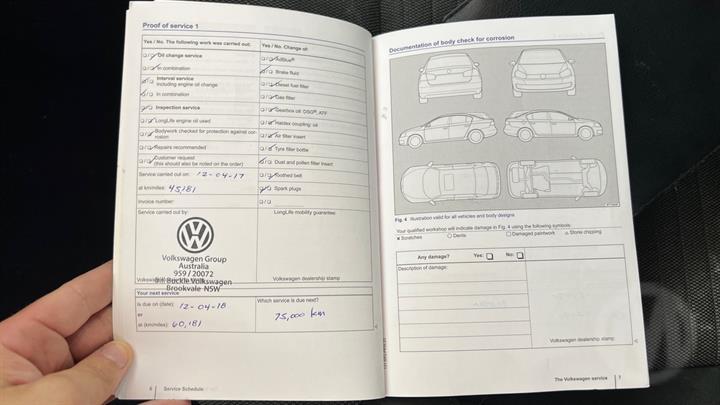 Proof of service 1
Yes / No. The following work was carried out:
Yes / No. Change of:
Oil change service
AdBlue®
In combination
Brake fluid
Interval service
including engine oil change
Diesel fuel filter
In combination
Gas filter
Inspection service
Gearbox oil: DSG®, ATF
LongLife engine oil used
Haldex coupling: oil
Bodywork checked for protection against cor-
rosion
Air filter insert
Repairs recommended
Tyre filler bottle
Customer request
(this should also be noted on the order)
Dust and pollen filter insert
Service carried out on: 12-04-17
Toothed belt
at km/miles: 45,181
Spark plugs
Invoice number:
Service carried out by:
LongLife mobility guarantee:
Volkswagen Group
Australia
959 / 20072
Bill Buckle Volkswagen
Brookvale NSW
Volkswagen dealership stamp
Your next service
is due on (date): 12-04-18
Which service is due next?
or
75,000 km
at (km/miles): 60,181
6 Service Schedule
Documentation of body check for corrosion
Fig. 4 Illustration valid for all vehicles and body designs
Your qualified workshop will indicate damage in Fig. 4 using the following symbols:
Scratches
Dents
Damaged paintwork
Stone chipping
Any damage? Yes: No:
Description of damage:
Volkswagen dealership stamp
The Volkswagen service 7